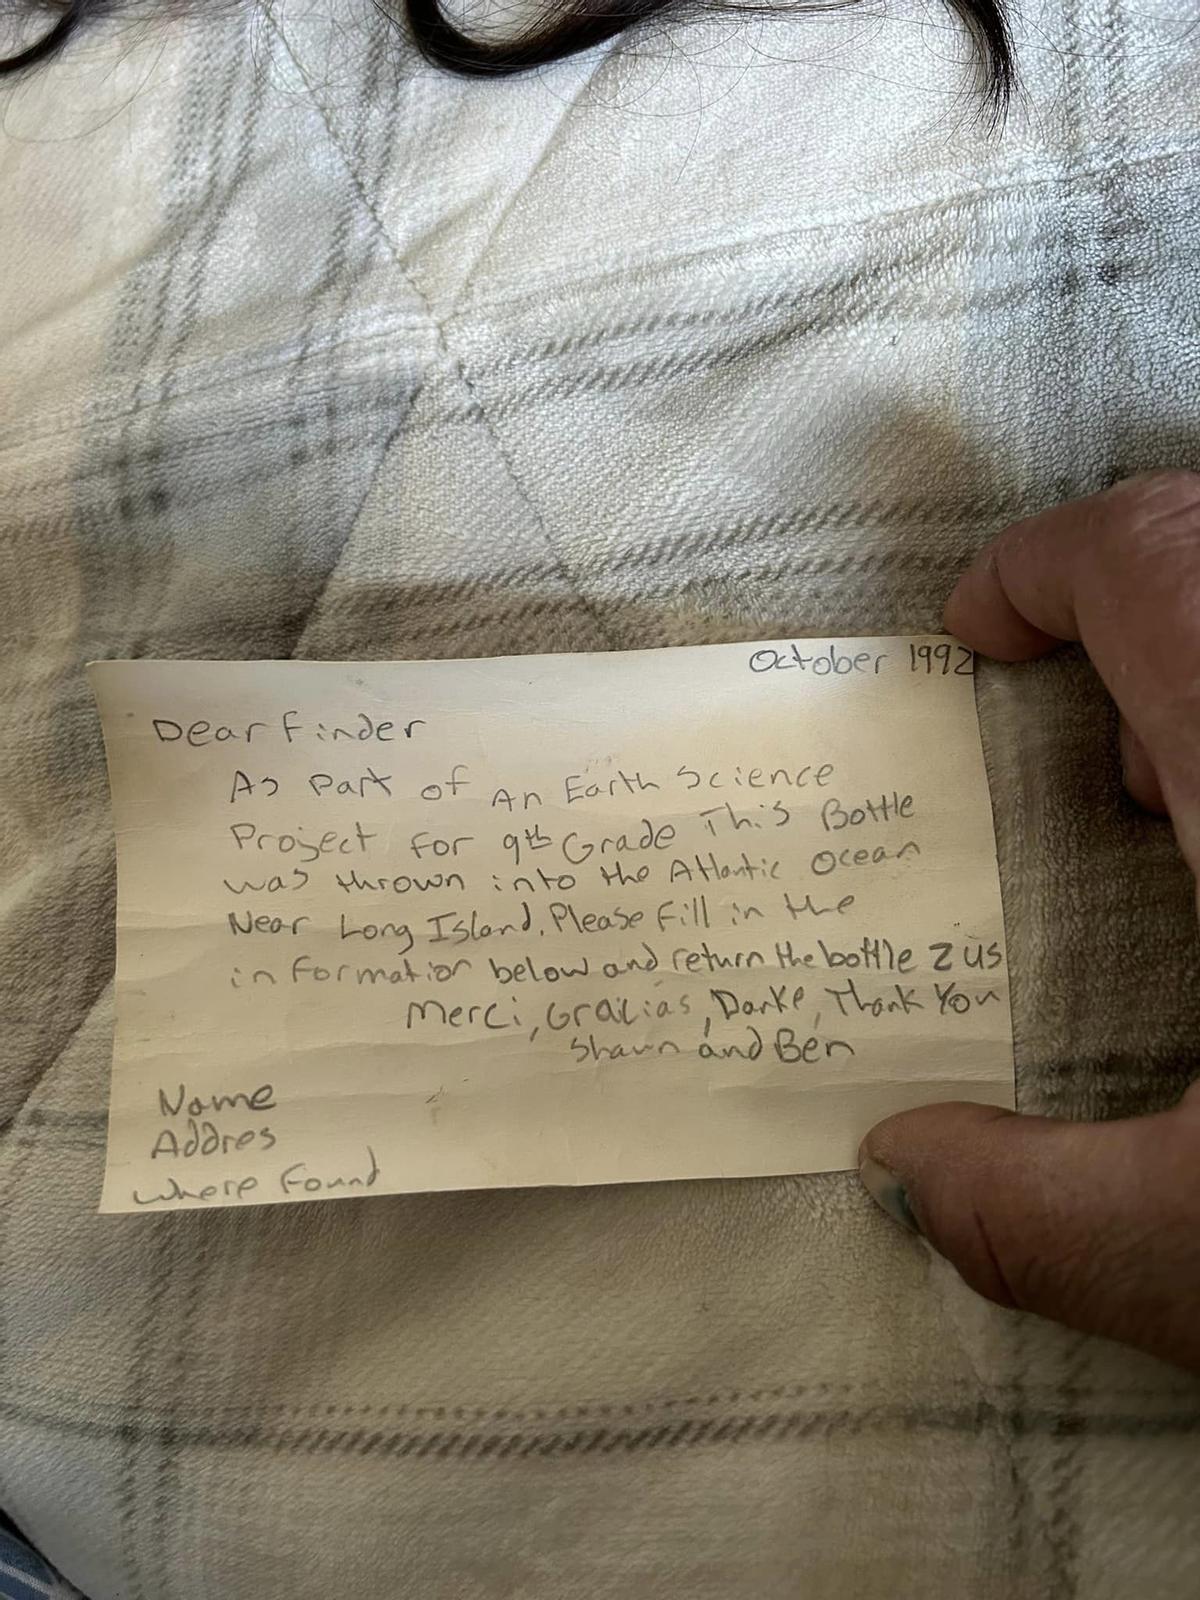 October 1992
Dear Finder
As Part of An Earth Science
Project For 9th Grade This Bottle
was thrown into the Atlantic Ocean
Near Long Island. Please Fill in the
information below and return the bottle 2 us
Merci, Gracias, Danke, Thank You
Shawn and Ben
Name
Addres
Where Found